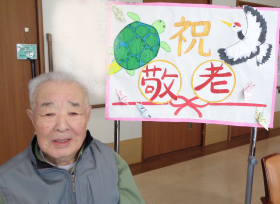 祝
敬老